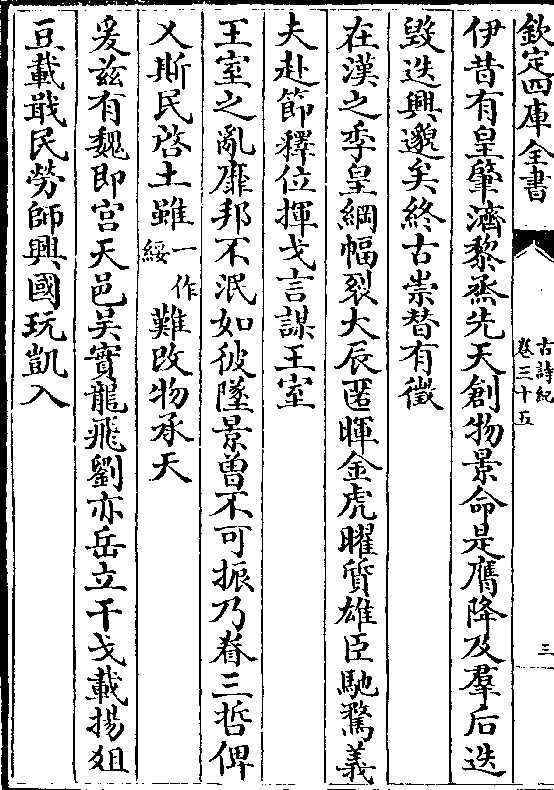 欽定四庫全書
古詩紀
卷三十五
三
伊昔有皇肇濟黎烝先天創物景命是膺降及羣后迭
毀迭興邈矣終古崇替有徵
在漢之季皇綱幅裂大辰匿暉金虎曜質雄臣馳騖義
夫赴節釋位揮戈言謀王室
王室之亂靡邦不泯如彼墜景曽不可振乃眷三哲俾
乂斯民啓土雖一作綏難改物承天
爰兹有魏即宫天邑吴實龍飛劉亦岳立干戈載揚俎
豆載戢民勞師興國玩凱入